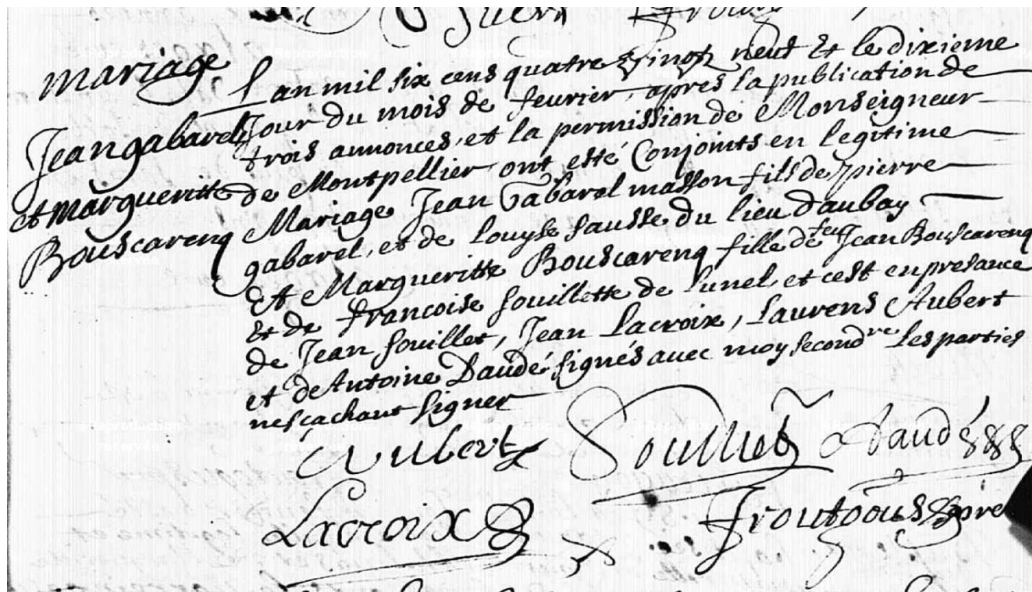 mariage
Jean gabarel
et margueritte
Bouscarenq
L'an mil six cens quatre vingt neuf et le dixieme
Jour du mois de feurier, apres la publication de
trois annonces, et la permission de Monseigneur
de Montpellier, ont esté Conjoints en legitime
Mariage Jean Gabarel masson fils de pierre
gabarel, et de Louyse sausse du lieu d'aubay
Et Margueritte Bouscarenq fille de feu Jean Bouscarenq
et de francoise souillette de Lunel et cest en presance
de Jean souillet, Jean Lacroix, Laurens Aubert
et de Antoine Daudé signés avec moy second.re les parties
nescachant signer
Aubert Soulliet Daudé
Lacroix